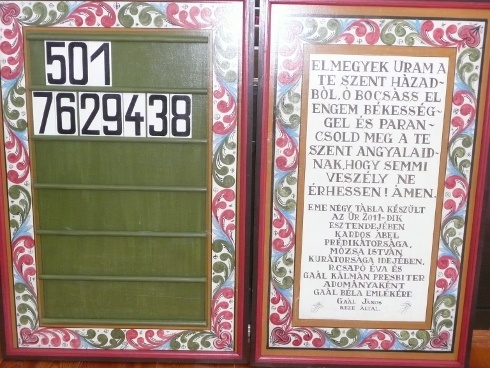 501
7629438
ELMEGYEK URAM A
TE SZENT HÀZAD-
BÒL, Ò BOCSÀSS EL
ENGEM BÉKESSÉG-
GEL ÉS PARAN-
CSOLD MEG A TE
SZENT ANGYALAID-
NAK, HOGY SEMMI
VESZÉLY NE
ÉRHESSEN! ÀMEN.
EME NÉGY TÀBLA KÉSZÜLT
AZ ÚR 2011-DIK
ESZTENDEJÉBEN
KARDOS ÀBEL
PRÉDIKÀTORSÀGA,
MÒZSA ISTVÀN
KURÀTORSÀGA IDEJÉBEN,
P.CSAPÓ ÉVA ÉS
GAÀL KÀLMÀN PRESBITER
ADOMÀNYAKÉNT
GAÀL BÉLA EMLÉKÉRE
GAÀL JÀNOS
KEZE ÀLTAL